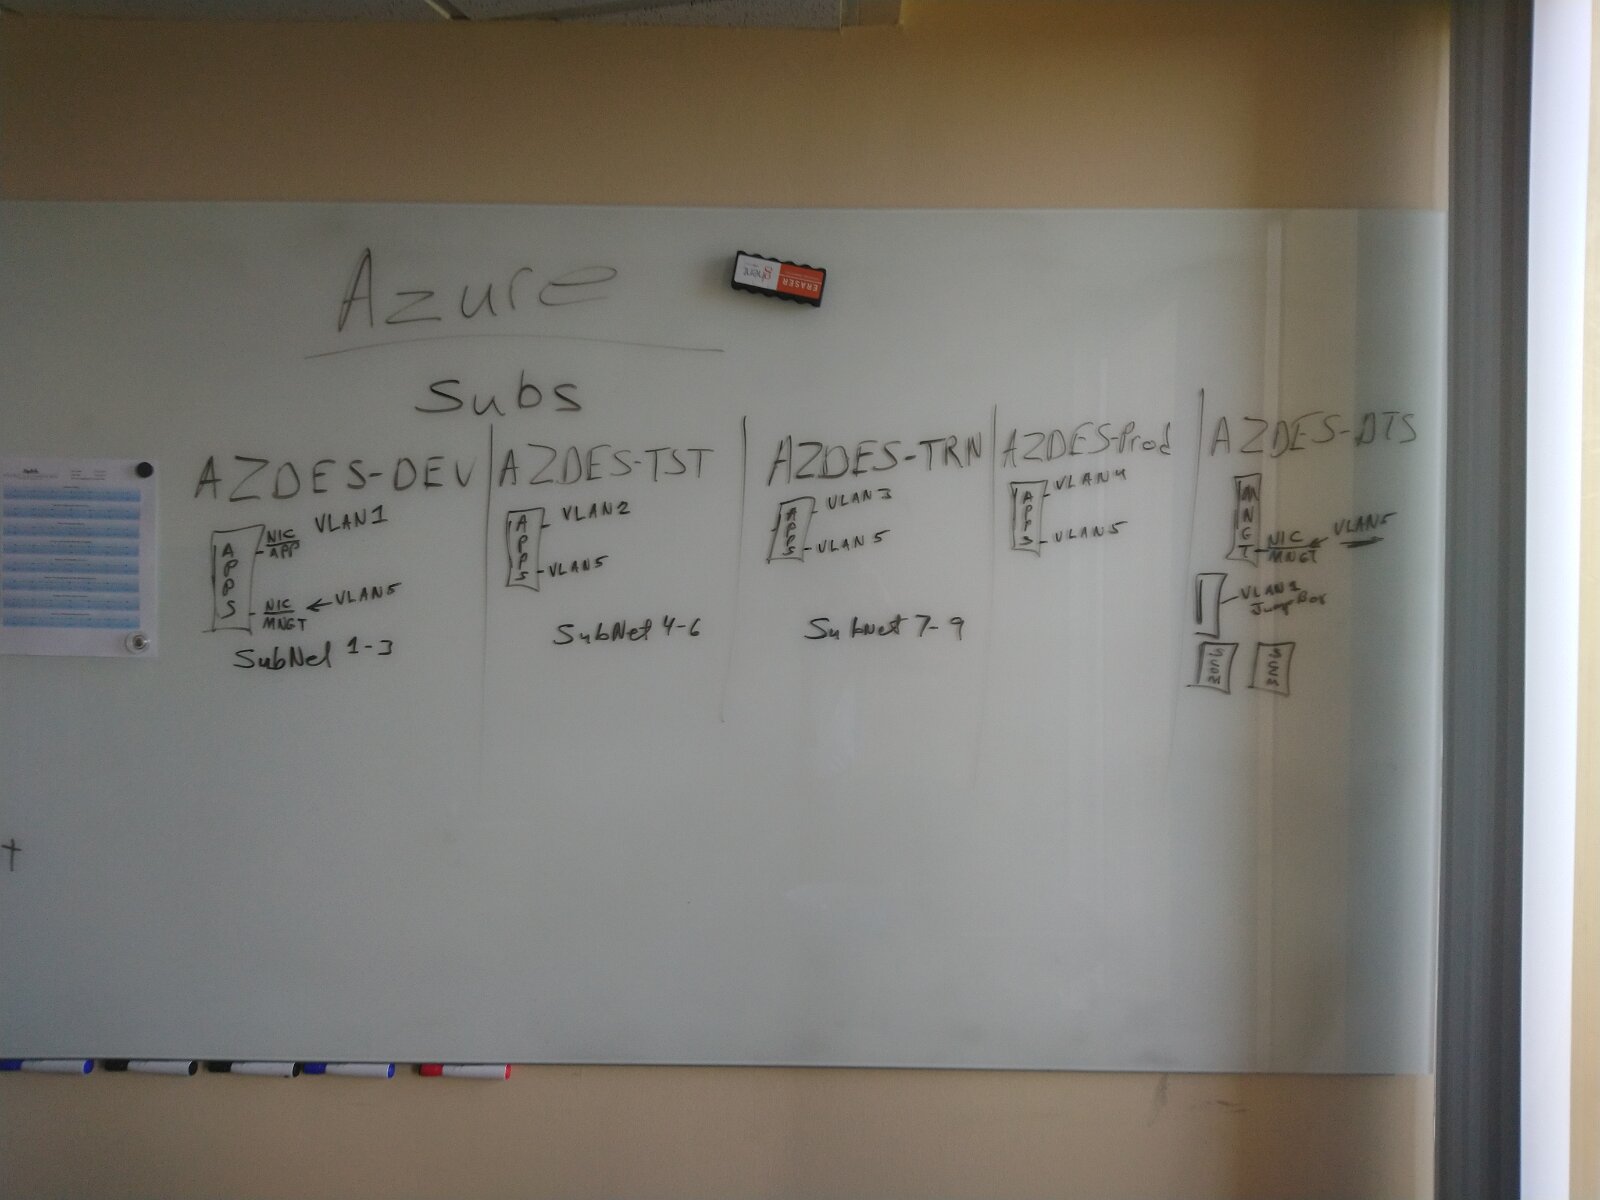 Azure
ERASER
ghent
Subs
AZDES-DEV
APPS
NIC
APP
VLAN1
NIC
MNGT
VLAN5
SubNet 1-3
AZDES-TST
APPS
VLAN2
VLAN5
SubNet 4-6
AZDES-TRN
APPS
VLAN3
VLAN5
Subnet 7-9
AZDES-Prod
APPS
VLAN4
VLAN5
AZDES-DTS
MNGT
NIC
MNGT
VLAN5
VLAN1
JumpBox
SCOM